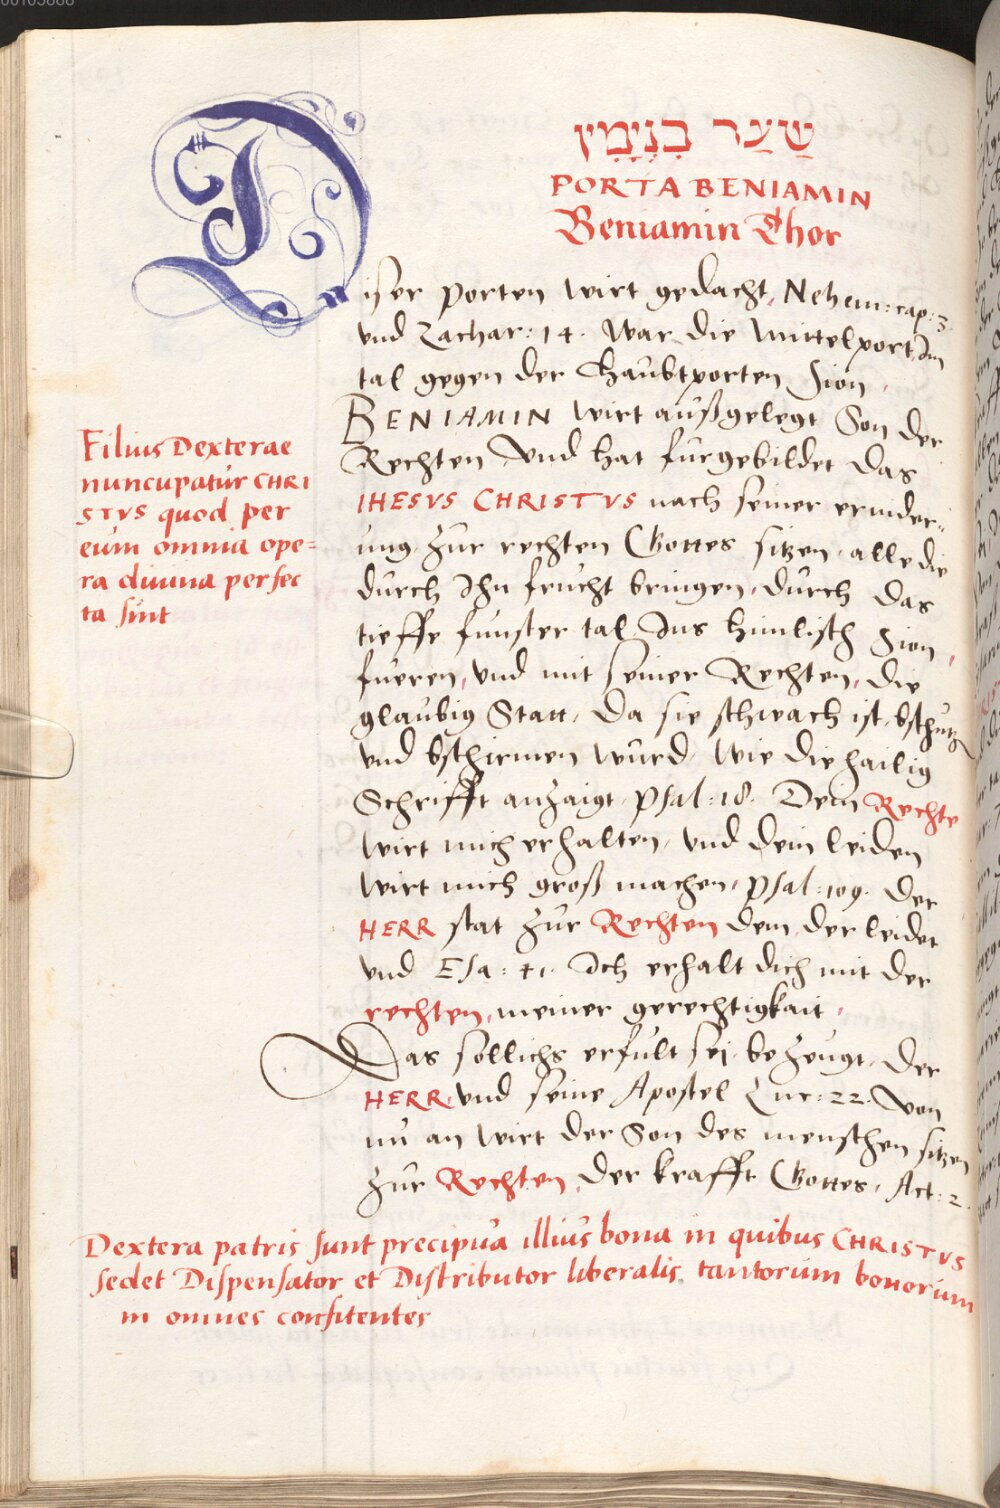 00103888
שַׁעַר בִנְיָמִין
PORTA BENIAMIN
Beniamin Thor
Diser porten wirt gedacht, Nehem: cap: 3.
vnd Zachar: 14. War die mittelport, Im
tal gegen der Haubtporten Sion,
BENIAMIN wirt außgelegt Son der
Rechten, Vnd hat fürgebildet das
IHESVS CHRISTVS nach seiner erinder=
ung, zur rechten Gottes sitzen, alle die
durch Ihn frucht bringen, durch das
tieffe finster tal Ins himlisch Sion,
fueren, vnd mit seiner Rechten, die
glaubig Statt, da sie schwach ist, bschutzn
vnd bschirmen wurd, Wie die hailig
Schrifft anzaigt, Psal: 18. Dein Rechte
wirt mich erhalten, vnd dein leiden
wirt mich groß machen, Psal: 109. Der
HERR stat zur Rechten dem, der leidet
vnd Esa: 41. Ich erhalt dich mit der
rechten, meiner gerechtigkait,
Das sollichs erfült sei, bezeugt, der
HERR, vnd seine Apostel Luc: 22. Von
nu an wirt der Son des menschen sitzen
zur Rechten, der krafft Gottes, Act: 2.
Filius Dexterae
nuncupatur CHRI
STVS quod per
eum omnia ope=
ra diuina perfec
ta sint
Dextera patris sunt precipua illius bona in quibus CHRISTVS
sedet Dispensator et Distributor liberalis, tantorum bonorum
in omnes confitentes